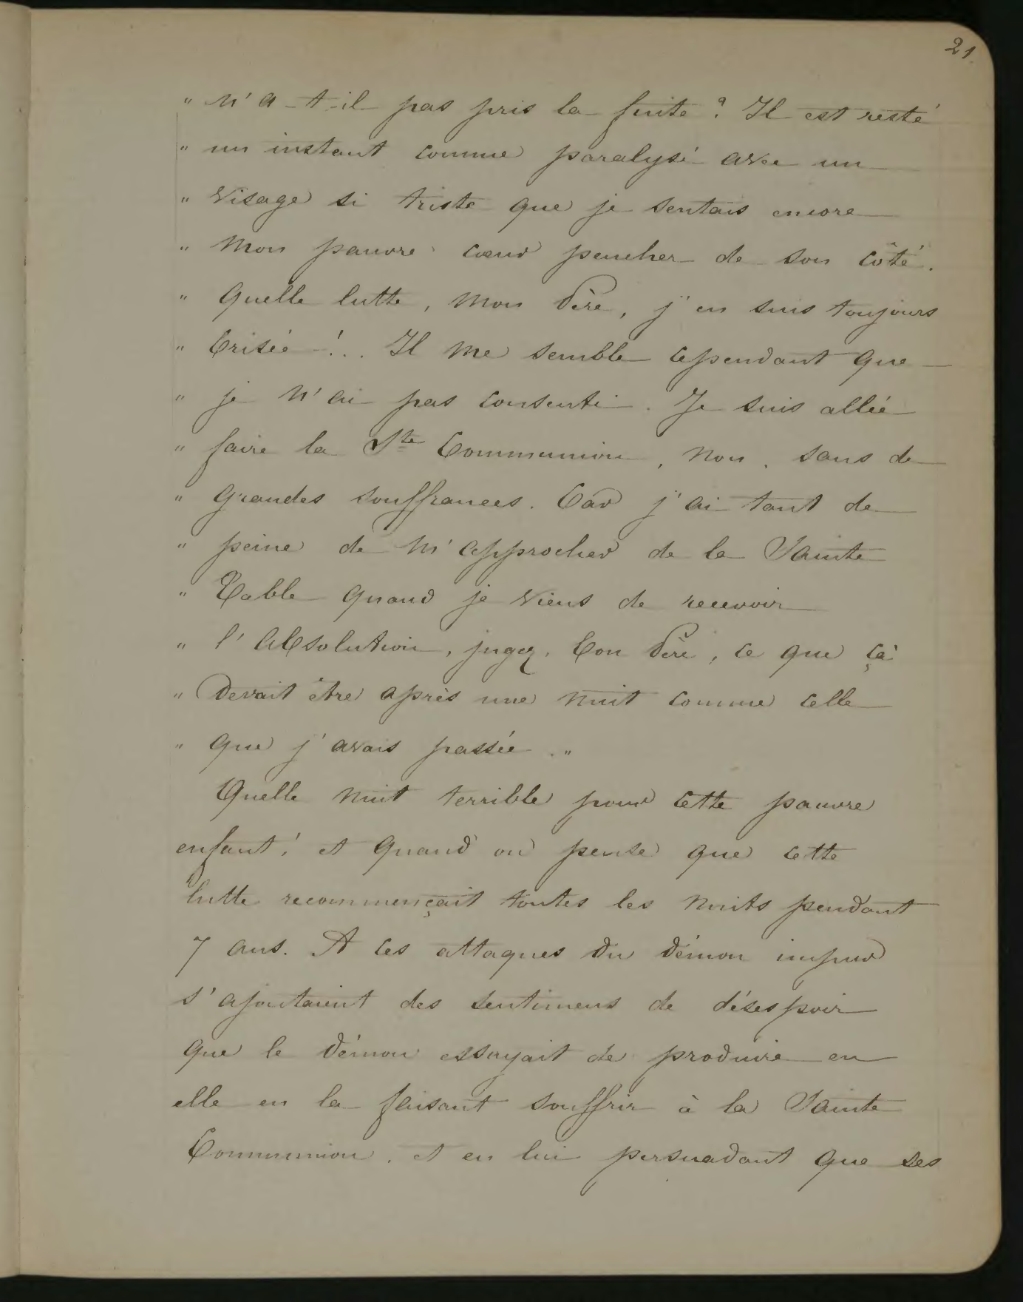 21.
" n'a-t-il pas pris la fuite ? Il est resté
" un instant comme paralysé avec un
" visage si triste que je sentais encore
" mon pauvre cœur pencher de son côté.
" Quelle lutte, mon Père, j'en suis toujours
" brisée !.. Il me semble cependant que
" je n'ai pas consenti. Je suis allée
" faire la Ste Communion, non, sans de
" grandes souffrances. Car j'ai tant de
" peine de m'approcher de la Sainte
" Table quand je viens de recevoir
" l'absolution, jugez, bon Père, ce que çà
" devait être après une nuit comme celle
" que j'avais passée. "
Quelle nuit terrible pour cette pauvre
enfant ! et quand on pense que cette
lutte recommençait toutes les nuits pendant
7 ans. A ces attaques du démon impur
s'ajoutaient des sentimens de désespoir
que le démon essayait de produire en
elle en la faisant souffrir à la Sainte
Communion, et en lui persuadant que ses